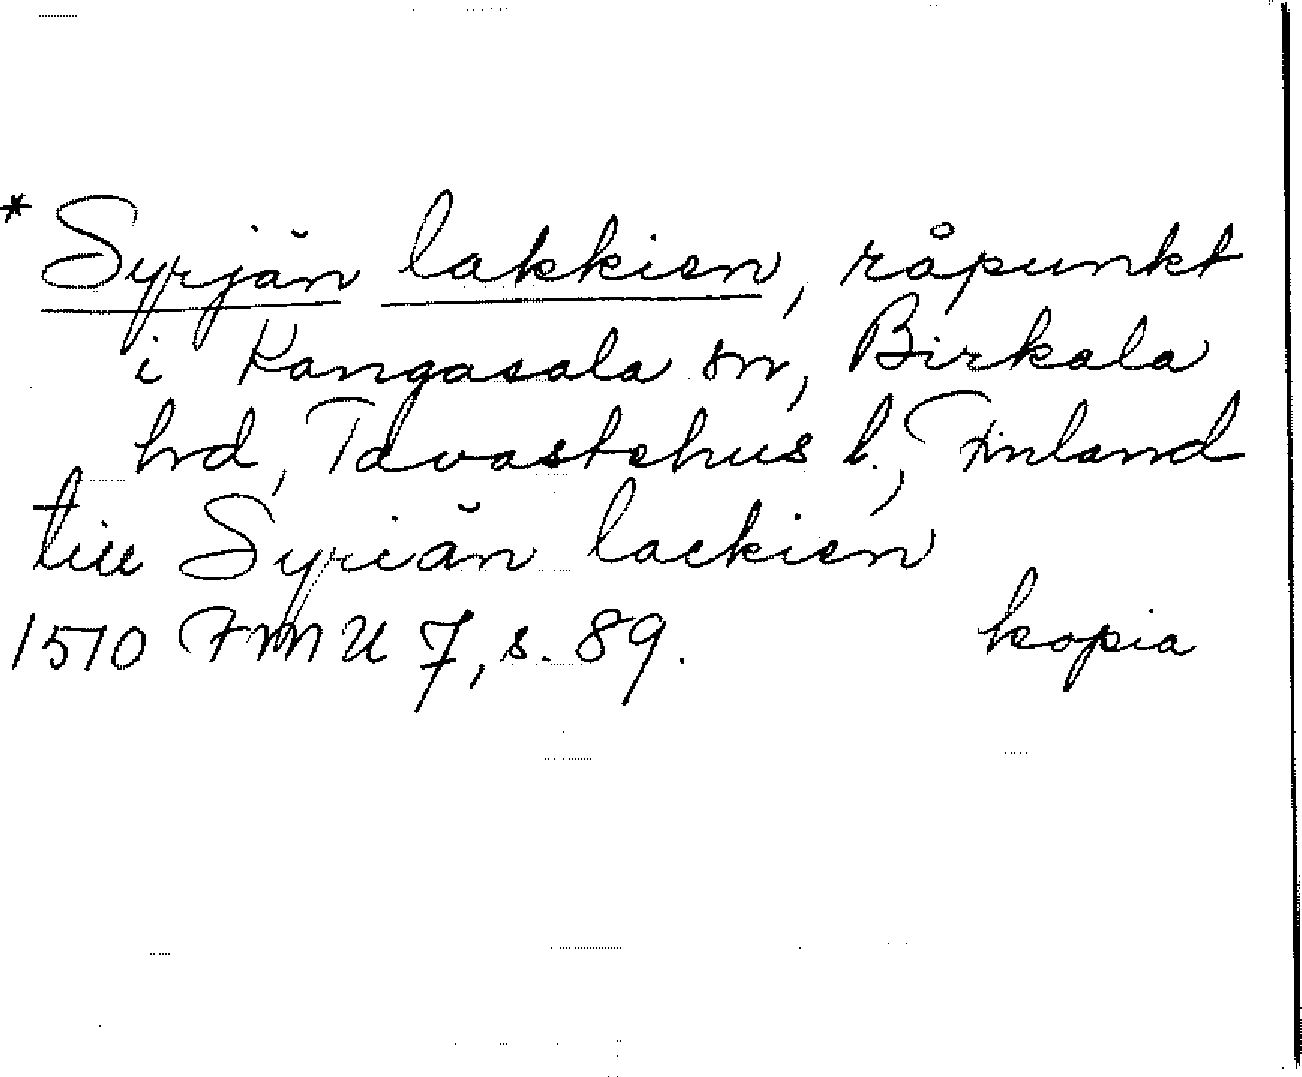 * Syrjän lakkien, råpunkt
i Kangasala sn, Birkala
hd, Tavastehus l., Finland
till Syriän lackien
1510 FMU 7, s. 89. kopia